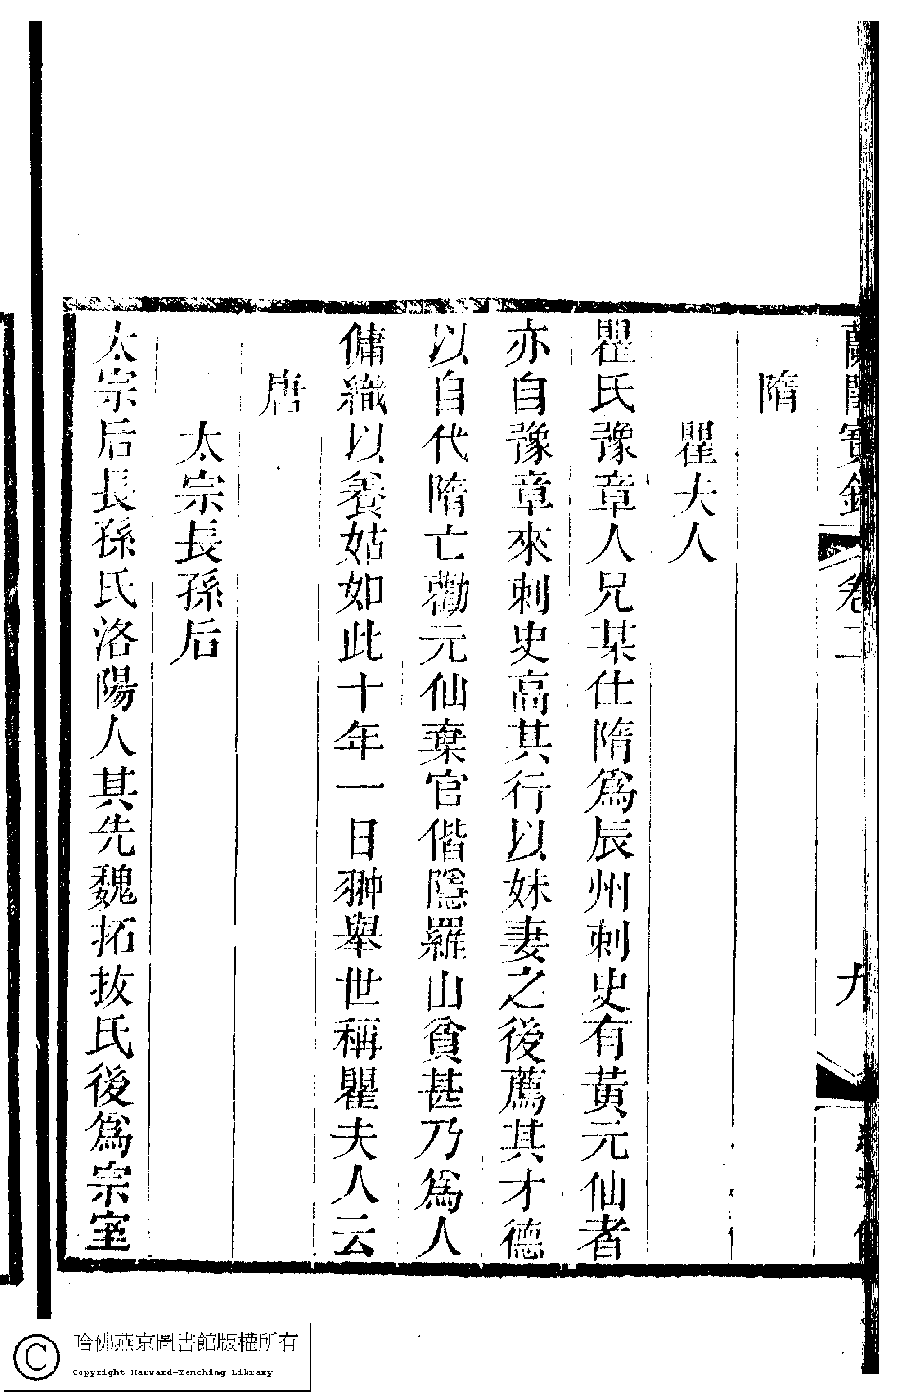 蘭閨寶錄 卷二 九
隋
瞿夫人
瞿氏豫章人兄某仕隋爲辰州刺史有黃元仙者
亦自豫章來刺史高其行以妹妻之後薦其才德
以自代隋亡勸元仙棄官偕隱羅山貧甚乃爲人
傭織以養姑如此十年一日翀舉世稱瞿夫人云
唐
太宗長孫后
太宗后長孫氏洛陽人其先魏拓拔氏後爲宗室
哈佛燕京圖書館版權所有
Copyright Harvard-Yenching Library